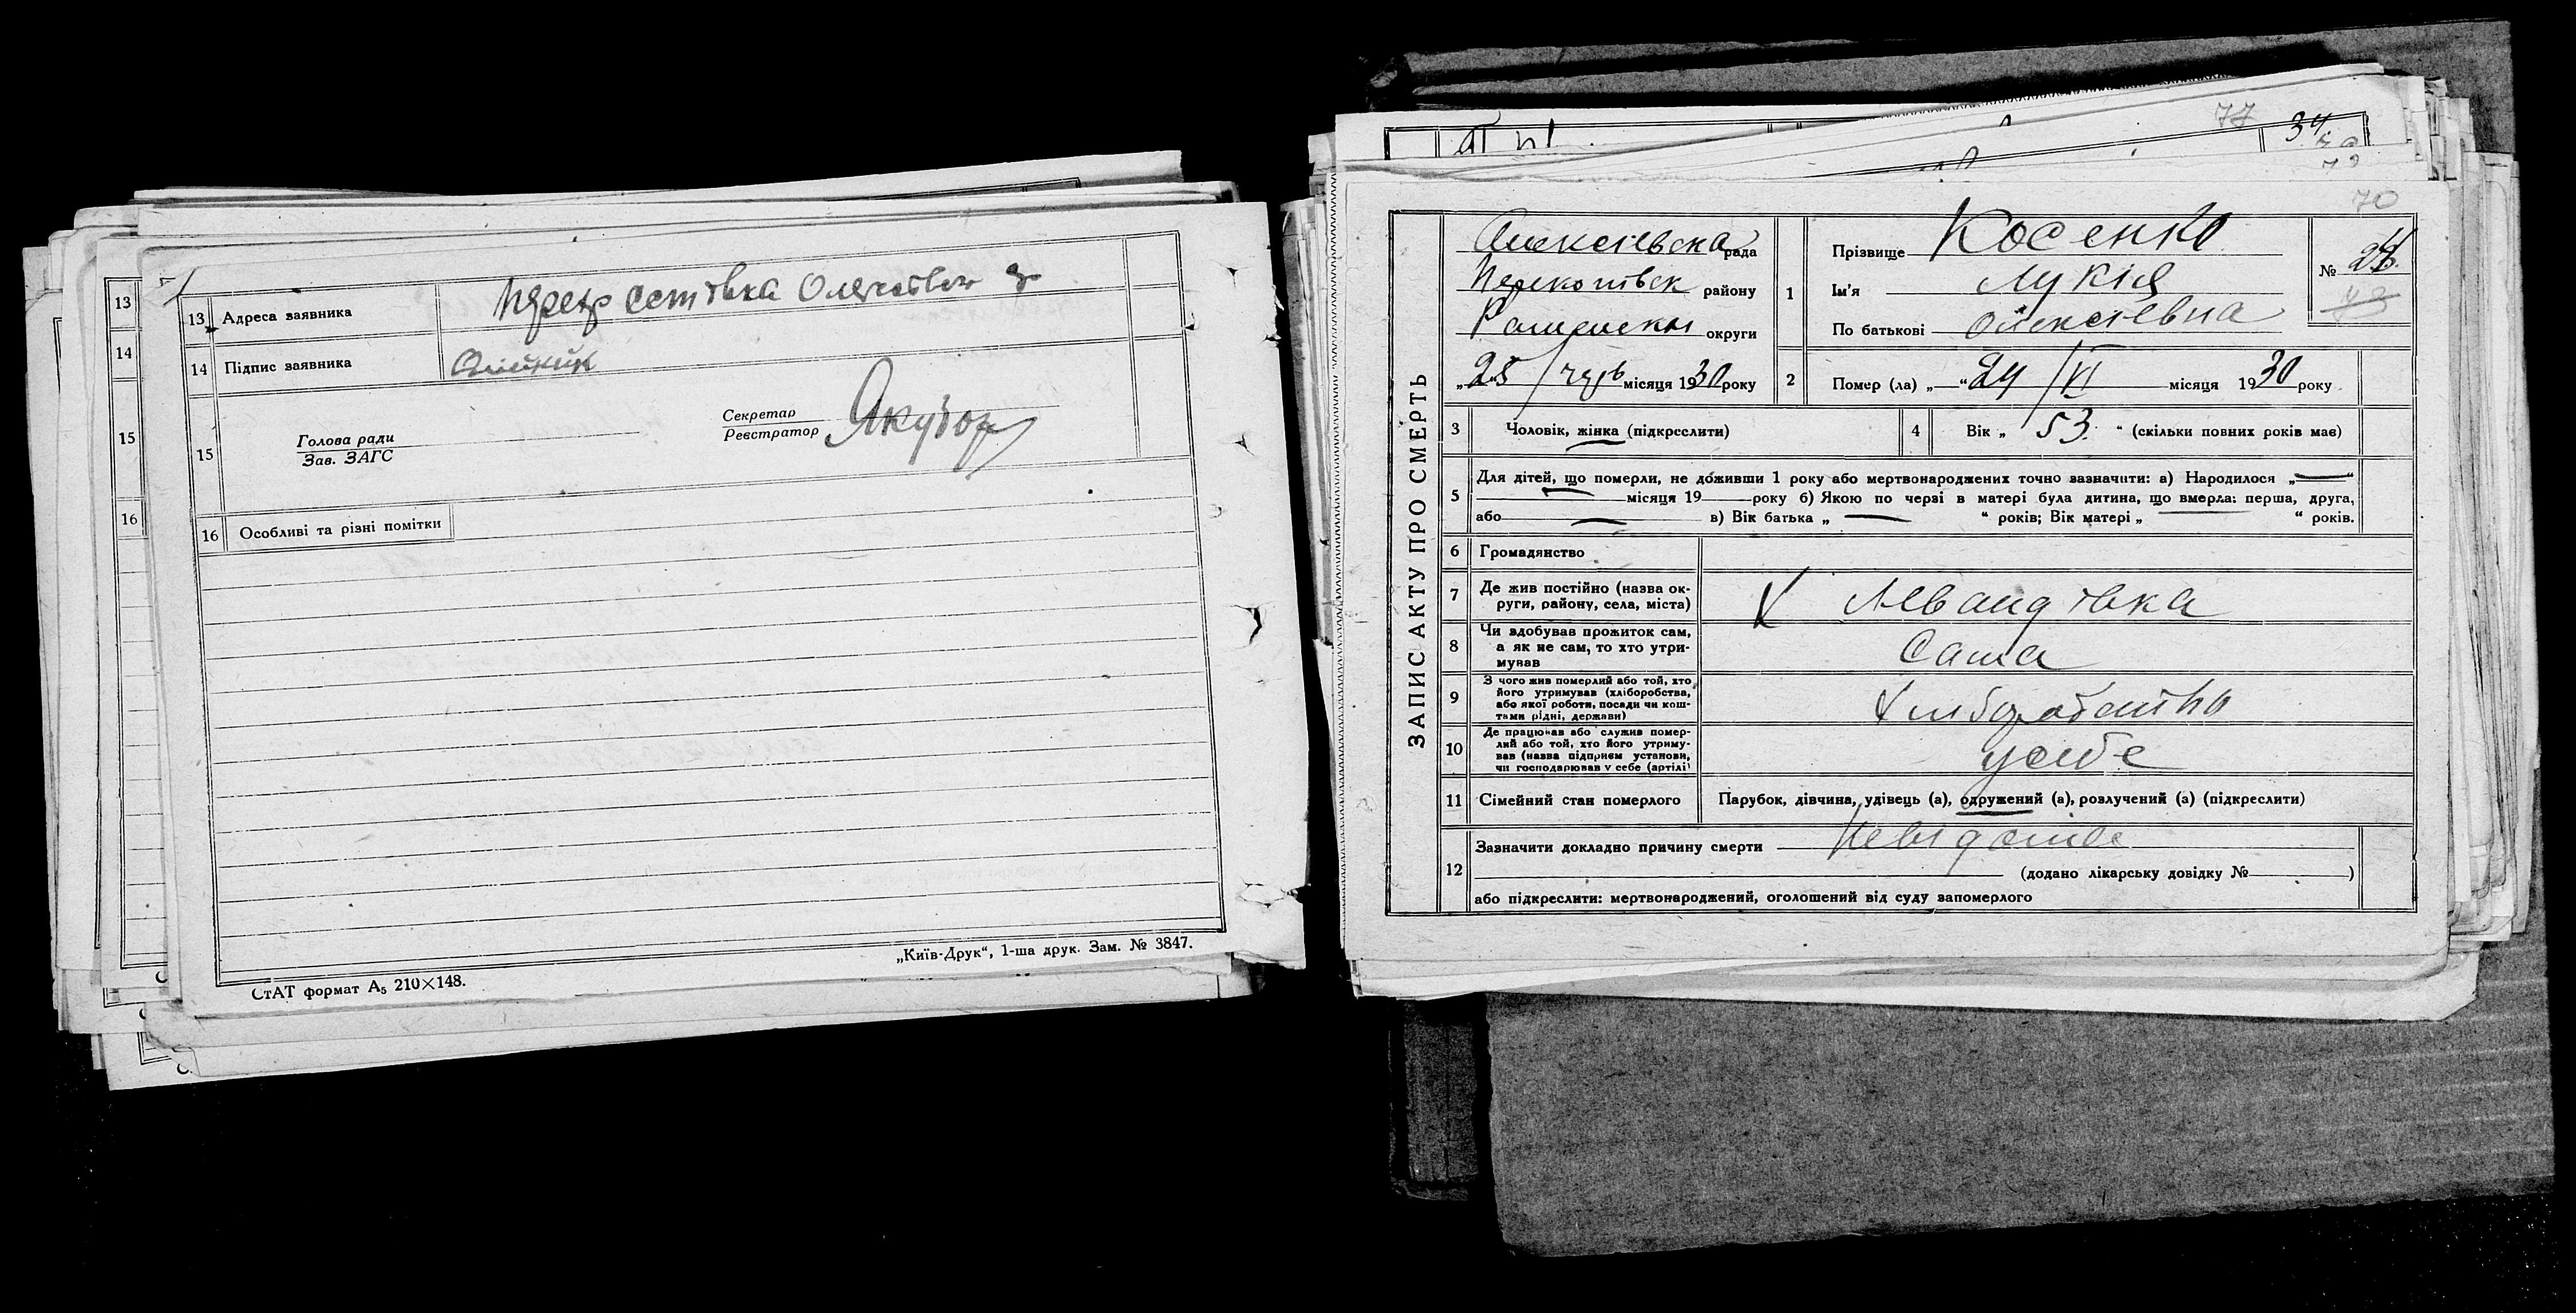 13
14
15
16
13 Адреса заявника
14 Підпис заявника
15 Голова ради
Зав. ЗАГС
Секретар
Реєстратор
16 Особливі та різні помітки
СтАТ формат А5 210×148.
„Київ-Друк“, 1-ша друк. Зам. № 3847.
77
34
70
ЗАПИС АКТУ ПРО СМЕРТЬ
рада
району
Роменськи округи
„25/ місяця 1930 року
1 Прізвище Косенко
Ім'я Лукія
По батькові Олексіевна
№
2 Помер (ла) „ “24/VI місяця 1930 року
3 Чоловік, жінка (підкреслити)
4 Вік „ 53. “ (скільки повних років мав)
5 Для дітей, що померли, не доживши 1 року або мертвонароджених точно зазначити: а) Народилося „—“
місяця 19 року б) Якою по черзі в матері була дитина, що вмерла: перша, друга,
або в) Вік батька „ — “ років; Вік матері „ “ років.
6 Громадянство
7 Де жив постійно (назва ок-
руги, району, села, міста)
8 Чи здобував прожиток сам,
а як не сам, то хто утри-
мував
Сама
9 З чого жив померлий або той, хто
його утримував (хліборобства,
або якої роботи, посади чи кош-
тами рідні, держави)
10 Де працював або служив помер-
лий або той, хто його утриму-
вав (назва підприєм установи,
чи господарював у себе (артілі)
усебе
11 Сімейний стан померлого Парубок, дівчина, удівець (а), одружений (а), розлучений (а) (підкреслити)
12 Зазначити докладно причину смерти Невідомо
(додано лікарську довідку № )
або підкреслити: мертвонароджений, оголошений від суду запомерлого